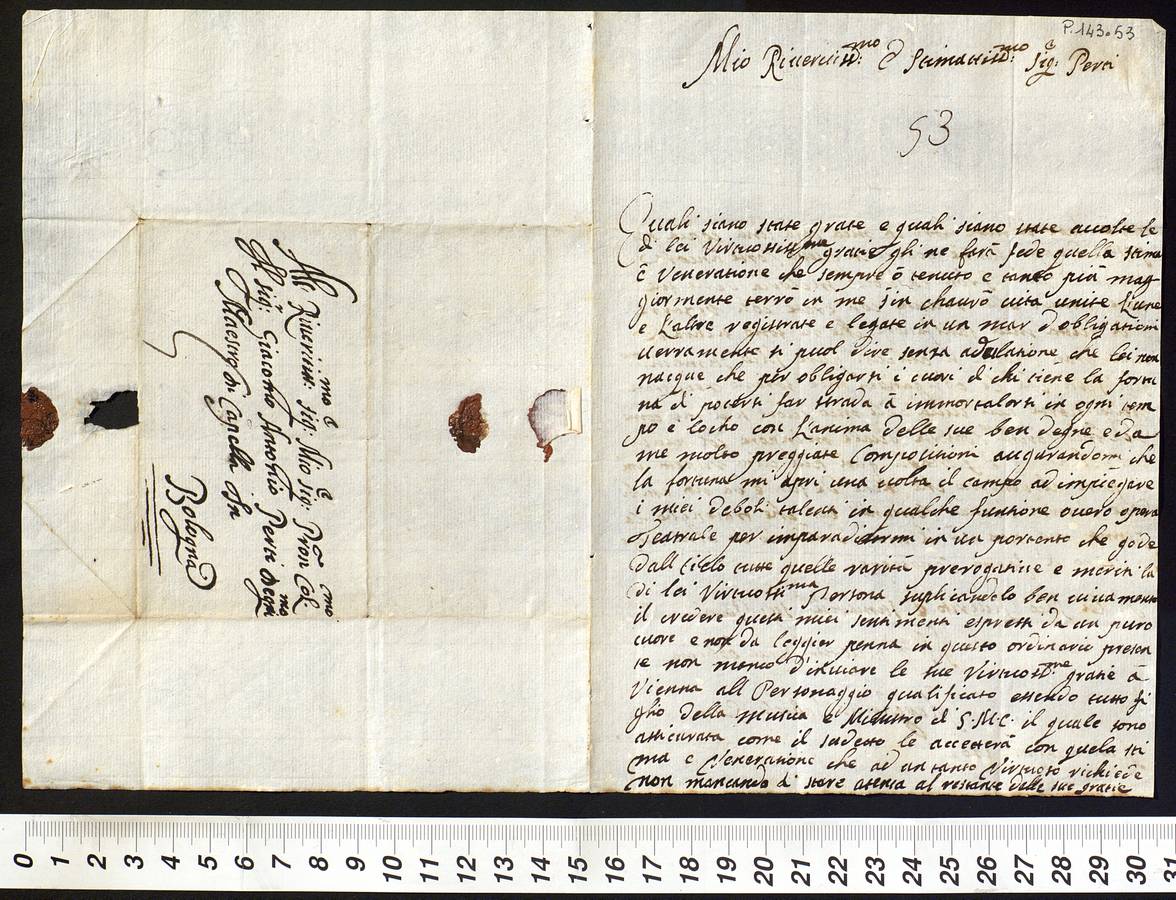 P.143.53
Mio Riveritiss:mo e Stimatiss:mo Sig:e Perti
53
Quali siano state grate e quali siano state accolte le
di lei Virtuosissme gracie gli ne farà fede quella stima
e Veneratione che sempre ò tenuto e tanto più mag
giormente terrò in me sin chavrò vita unite L'une
e L'altre registrate e legate in un mar d'obligationi
verramente si puol dire senza adulatione che lei non
nacque che per obligarsi i cuori di chi tiene la fortu
na di potersi far strada à immortalarsi in ogni tem
po e locho con L'anima delle sue ben degne e da
me molto preggiate Compositioni augurandomi che
la fortuna mi apri una volta il campo ad impiegare
i miei deboli talenti in qualche funtione overo opera
Teatrale per imparadisarmi in un portento che gode
dall Cielo tutte quelle rarità prerogative e meriti la
di lei Virtuossma Persona suplicandolo ben vivamente
il credere questi miei sentimenti espressi da un puro
cuore e non da leggier penna in questo ordinario presen
te non manco d'inviare le sue Virtuosme gratie à
Vienna all Personaggio qualificato essendo tutto fi
glio della musica e Ministro di S.M.C. il quale sono
assicurata come il sudetto le accetterà con quela sti
ma e Veneratione che ad un tanto Virtuoso richiede
non mancando di stare atensa al restante delle sue gratie
All Riveritiss:mo Sig:e Mio Sig:e Pron Col:mo
Il Sig: Giacomo Antonio Perti Degnmo
Maestro di Capella In
Bologna
0 1 2 3 4 5 6 7 8 9 10 11 12 13 14 15 16 17 18 19 20 21 22 23 24 25 26 27 28 29 30 31